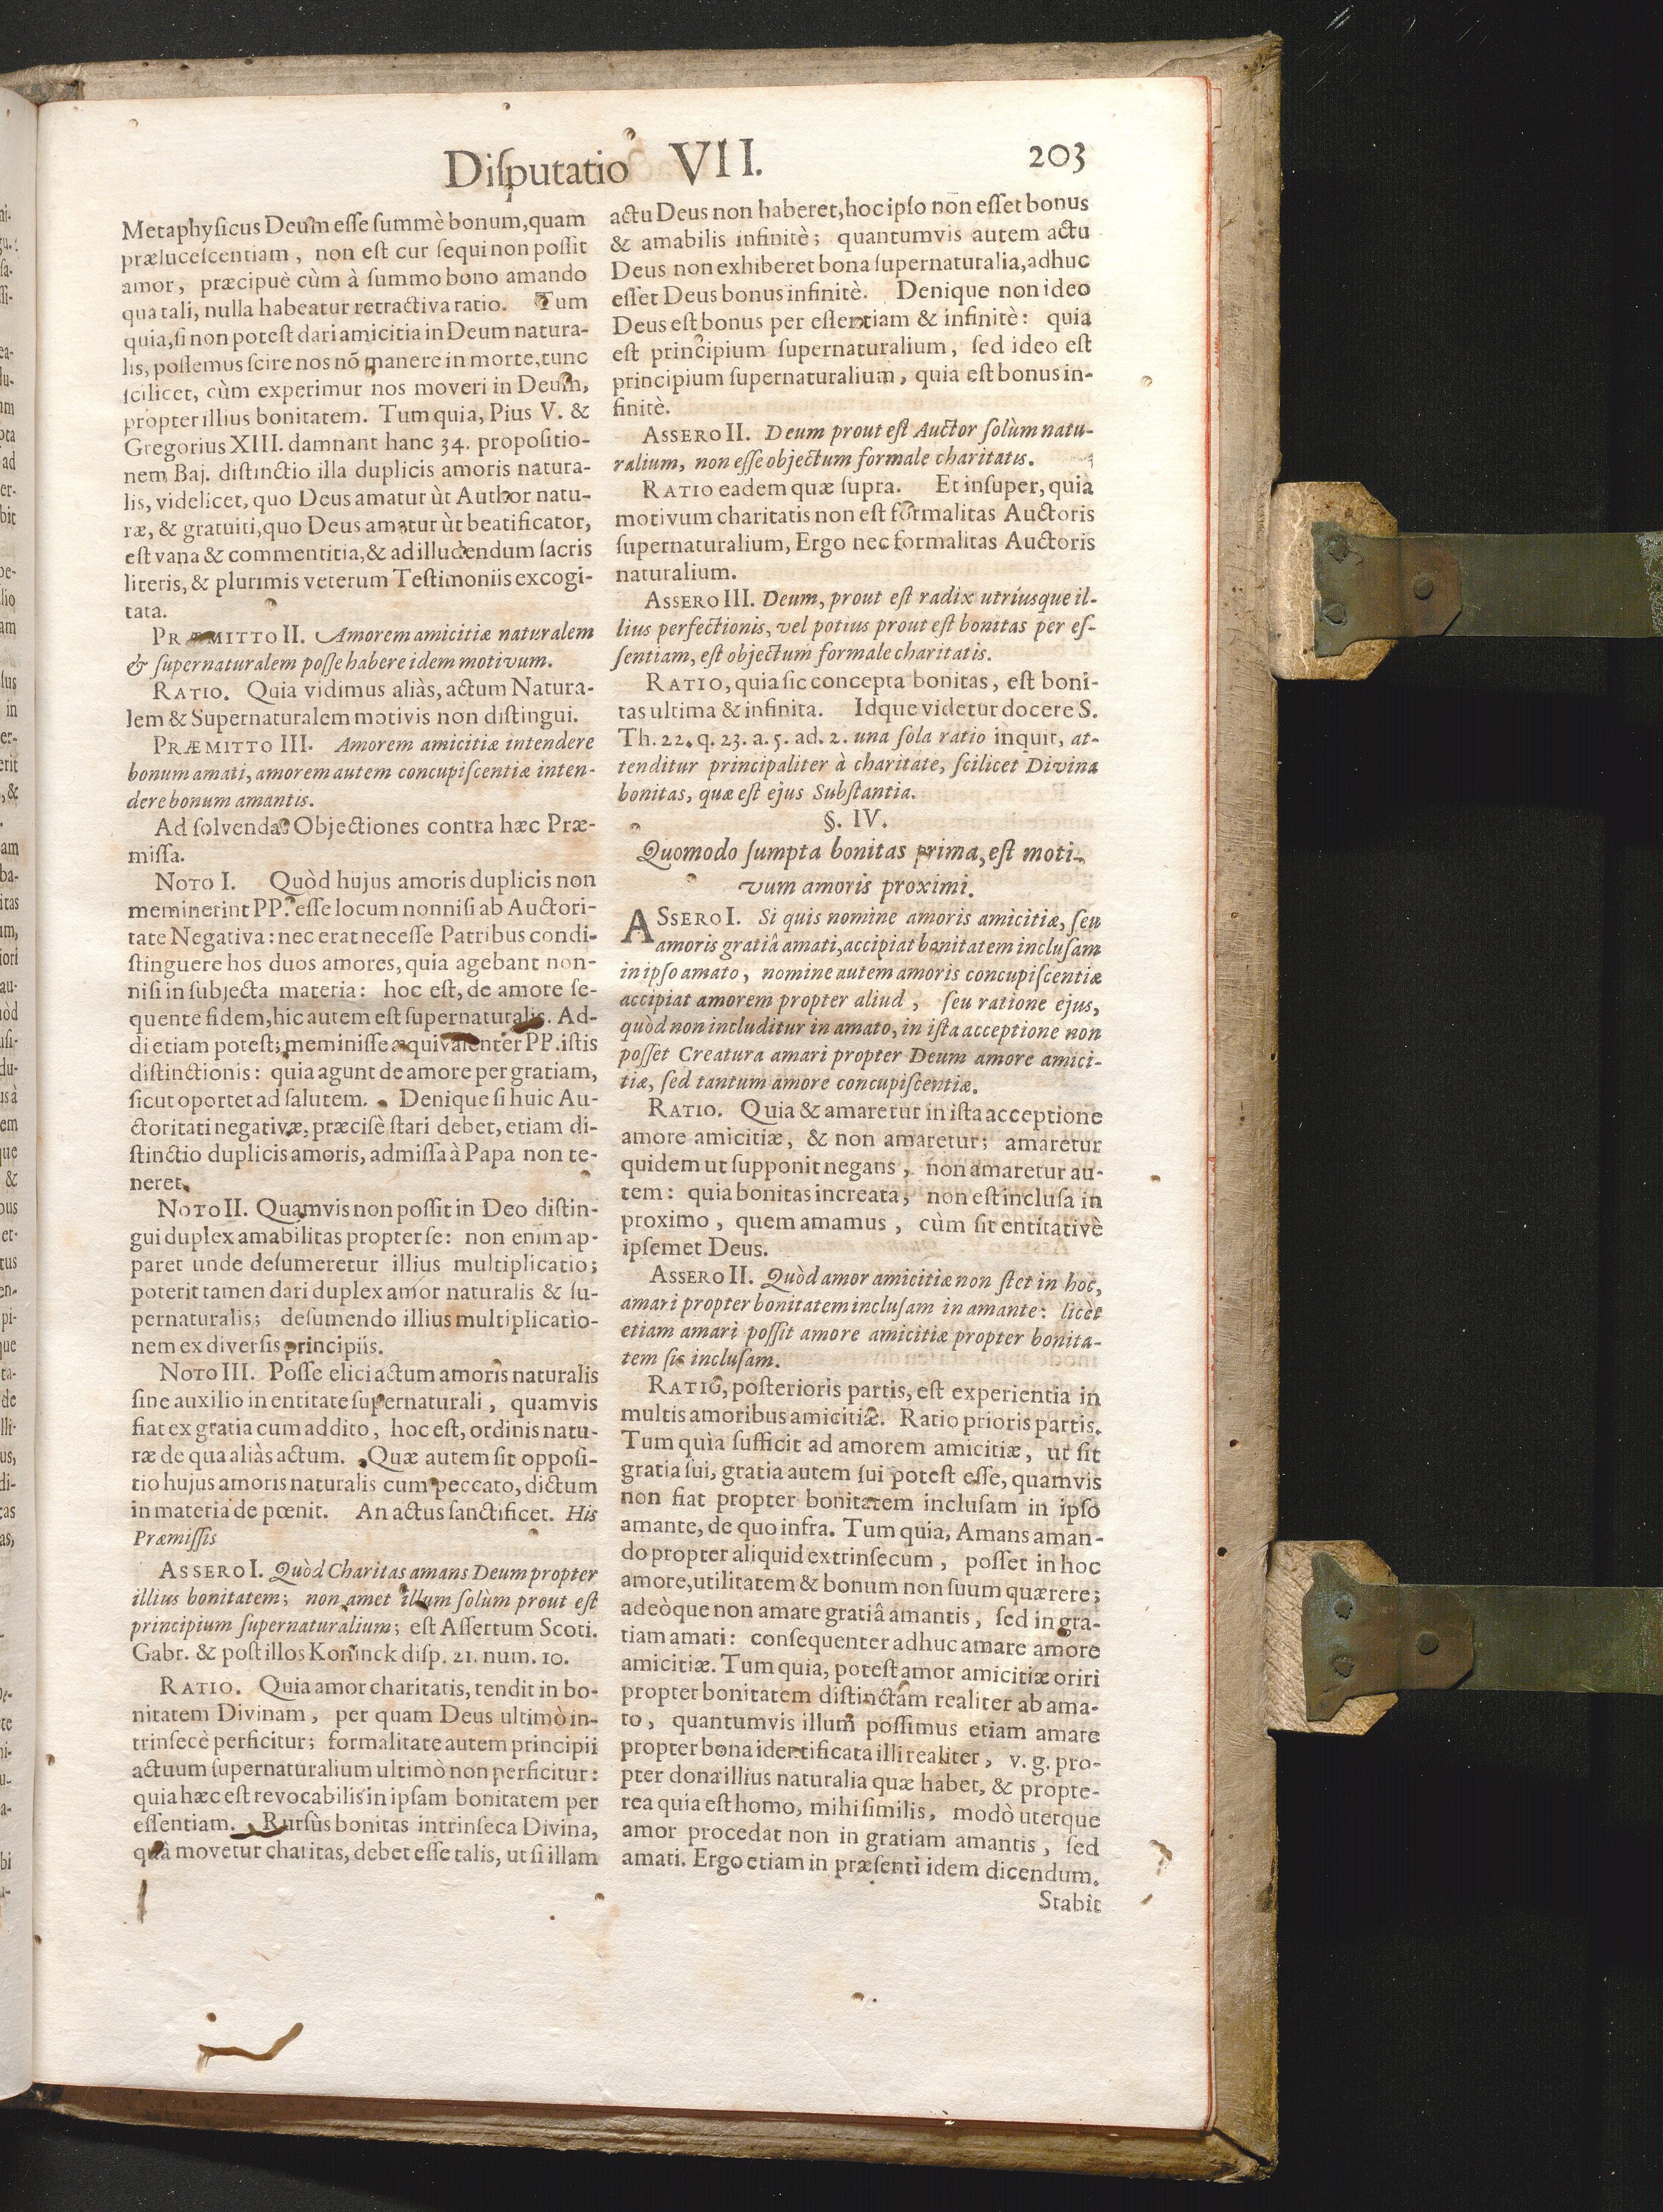 Disputatio VII.
203
Metaphysicus Deum esse summè bonum, quam
prælucescentiam, non est cur sequi non possit
amor, præcipuè cùm à summo bono amando
quà tali, nulla habeatur retractiva ratio. Tum
quia, si non potest dari amicitia in Deum natura-
lis, possemus scire nos nõ manere in morte, tunc
scilicet, cùm experimur nos moveri in Deum,
propter illius bonitatem. Tum quia, Pius V. &
Gregorius XIII. damnant hanc 34. propositio-
nem Baj. distinctio illa duplicis amoris natura-
lis, videlicet, quo Deus amatur ùt Author natu-
ræ, & gratuiti, quo Deus amatur ùt beatificator,
est vana & commentitia, & ad illudendum sacris
literis, & plurimis veterum Testimoniis excogi-
tata.
PRÆMITTO II. Amorem amicitiæ naturalem
& supernaturalem posse habere idem motivum.
RATIO. Quia vidimus aliàs, actum Natura-
lem & Supernaturalem motivis non distingui.
PRÆMITTO III. Amorem amicitiæ intendere
bonum amati, amorem autem concupiscentiæ inten-
dere bonum amantis.
Ad solvendas Objectiones contra hæc Præ-
missa.
NOTO I. Quòd hujus amoris duplicis non
meminerint PP. esse locum nonnisi ab Auctori-
tate Negativa: nec erat necesse Patribus condi-
stinguere hos duos amores, quia agebant non-
nisi in subjecta materia: hoc est, de amore se-
quente fidem, hic autem est supernaturalis. Ad-
di etiam potest; meminisse æquivalenter PP. istis
distinctionis: quia agunt de amore per gratiam,
sicut oportet ad salutem. Denique si huic Au-
ctoritati negativæ, præcisè stari debet, etiam di-
stinctio duplicis amoris, admissa à Papa non te-
neret.
NOTO II. Quamvis non possit in Deo distin-
gui duplex amabilitas propter se: non enim ap-
paret unde desumeretur illius multiplicatio;
poterit tamen dari duplex amor naturalis & su-
pernaturalis; desumendo illius multiplicatio-
nem ex diversis principiis.
NOTO III. Posse elici actum amoris naturalis
sine auxilio in entitate supernaturali, quamvis
fiat ex gratia cum addito, hoc est, ordinis natu-
ræ de qua aliàs actum. Quæ autem sit opposi-
tio hujus amoris naturalis cum peccato, dictum
in materia de pœnit. An actus sanctificet. His
Præmissis
ASSERO I. Quòd Charitas amans Deum propter
illius bonitatem; non amet illum solùm prout est
principium supernaturalium; est Assertum Scoti.
Gabr. & post illos Koninck disp. 21. num. 10.
RATIO. Quia amor charitatis, tendit in bo-
nitatem Divinam, per quam Deus ultimò in-
trinsecè perficitur; formalitate autem principii
actuum supernaturalium ultimò non perficitur:
quia hæc est revocabilis in ipsam bonitatem per
essentiam. Rursùs bonitas intrinseca Divina,
quà movetur charitas, debet esse talis, ut si illam
actu Deus non haberet, hoc ipso non esset bonus
& amabilis infinitè; quantumvis autem actu
Deus non exhiberet bona supernaturalia, adhuc
esset Deus bonus infinitè. Denique non ideo
Deus est bonus per essentiam & infinitè: quia
est principium supernaturalium, sed ideo est
principium supernaturalium, quia est bonus in-
finitè.
ASSERO II. Deum prout est Auctor solùm natu-
ralium, non esse objectum formale charitatis.
RATIO eadem quæ supra. Et insuper, quia
motivum charitatis non est formalitas Auctoris
supernaturalium, Ergo nec formalitas Auctoris
naturalium.
ASSERO III. Deum, prout est radix utriusque il-
lius perfectionis, vel potius prout est bonitas per es-
sentiam, est objectum formale charitatis.
RATIO, quia sic concepta bonitas, est boni-
tas ultima & infinita. Idque videtur docere S.
Th. 22. q. 23. a. 5. ad. 2. una sola ratio inquit, at-
tenditur principaliter à charitate, scilicet Divina
bonitas, quæ est ejus Substantia.
§. IV.
Quomodo sumpta bonitas prima, est moti-
vum amoris proximi.
ASSERO I. Si quis nomine amoris amicitiæ, seu
amoris gratiâ amati, accipiat bonitatem inclusam
in ipso amato, nomine autem amoris concupiscentiæ
accipiat amorem propter aliud, seu ratione ejus,
quòd non includitur in amato, in ista acceptione non
posset Creatura amari propter Deum amore amici-
tiæ, sed tantum amore concupiscentiæ.
RATIO. Quia & amaretur in ista acceptione
amore amicitiæ, & non amaretur; amaretur
quidem ut supponit negans, non amaretur au-
tem: quia bonitas increata, non est inclusa in
proximo, quem amamus, cùm sit entitativè
ipsemet Deus.
ASSERO II. Quòd amor amicitiæ non stet in hoc,
amari propter bonitatem inclusam in amante: licèt
etiam amari possit amore amicitiæ propter bonita-
tem sic inclusam.
RATIO, posterioris partis, est experientia in
multis amoribus amicitiæ. Ratio prioris partis.
Tum quia sufficit ad amorem amicitiæ, ut sit
gratia sui, gratia autem sui potest esse, quamvis
non fiat propter bonitatem inclusam in ipso
amante, de quo infra. Tum quia, Amans aman-
do propter aliquid extrinsecum, posset in hoc
amore, utilitatem & bonum non suum quærere;
adeòque non amare gratiâ amantis, sed in gra-
tiam amati: consequenter adhuc amare amore
amicitiæ. Tum quia, potest amor amicitiæ oriri
propter bonitatem distinctam realiter ab ama-
to, quantumvis illum possimus etiam amare
propter bona identificata illi realiter, v. g. pro-
pter dona illius naturalia quæ habet, & propte-
rea quia est homo, mihi similis, modò uterque
amor procedat non in gratiam amantis, sed
amati. Ergo etiam in præsenti idem dicendum.
Stabit